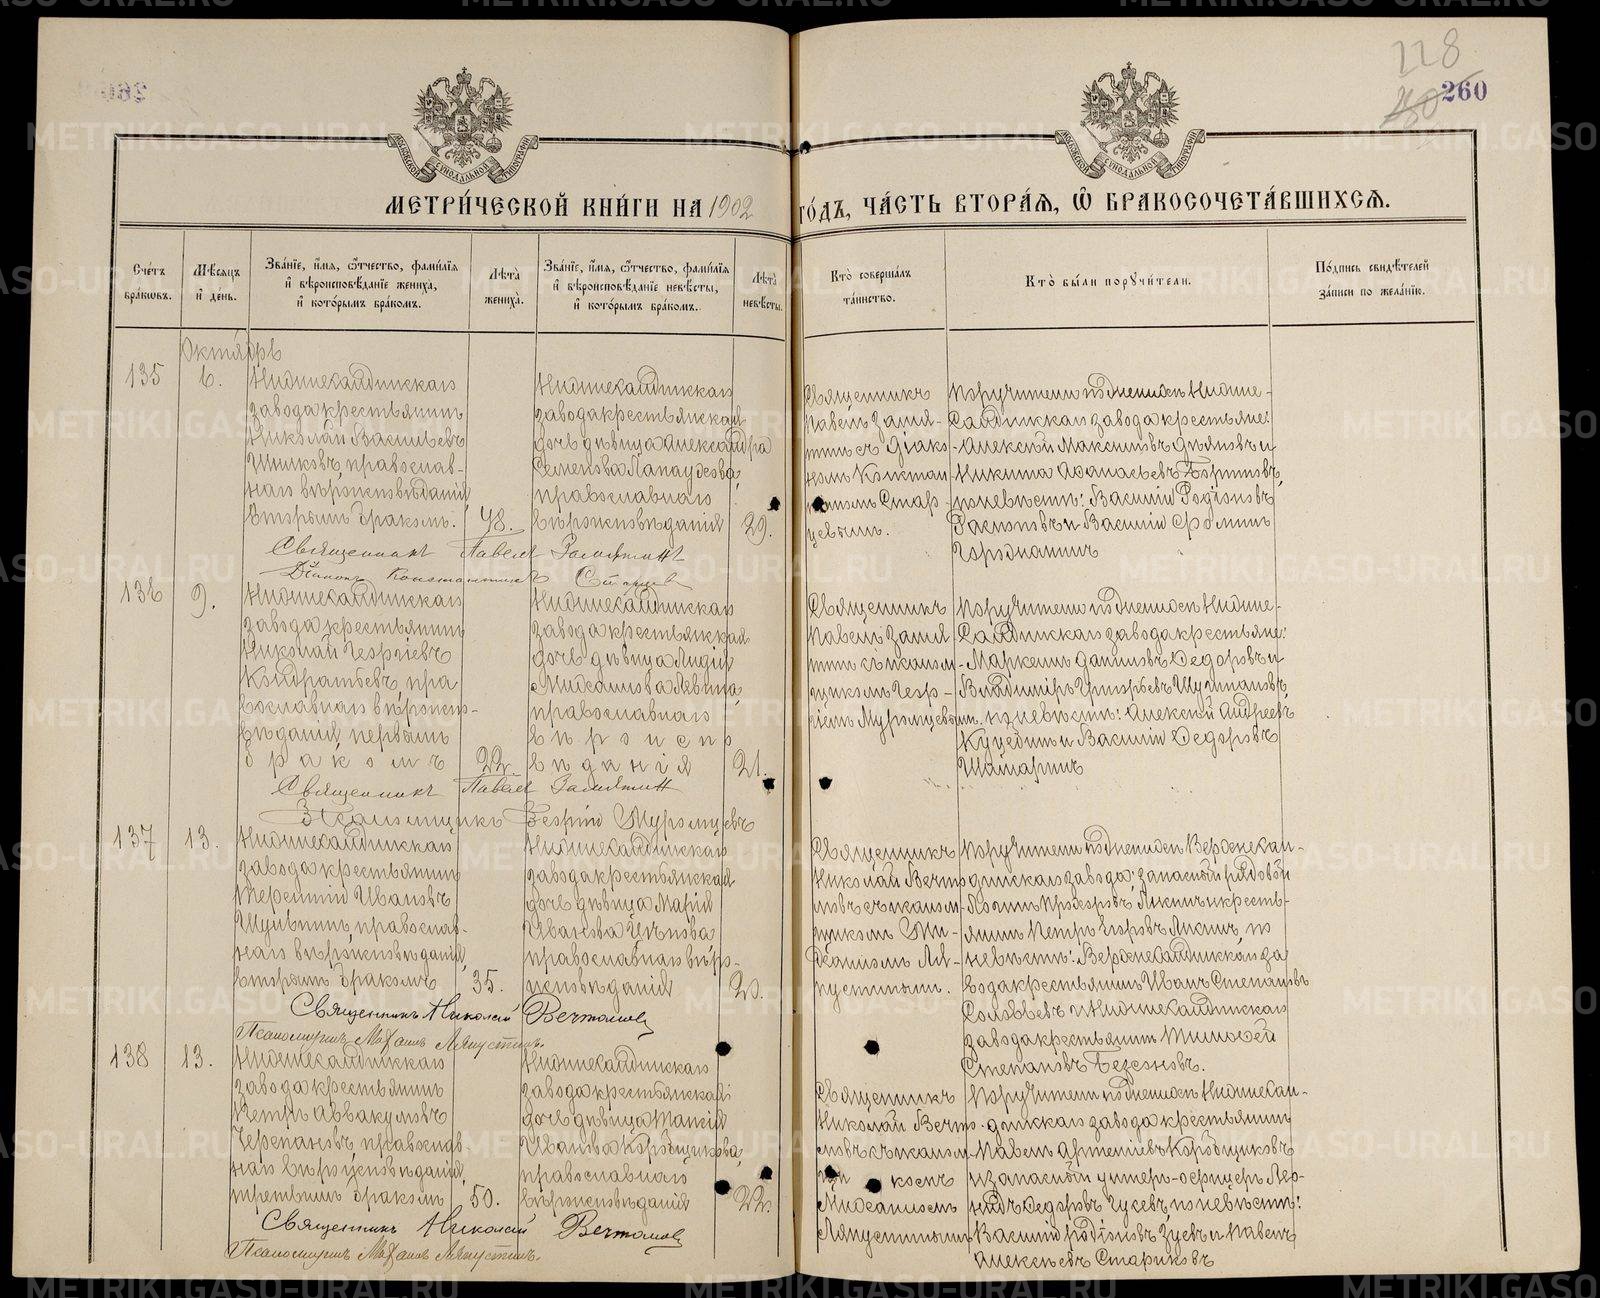 228
260
МЕТРИ́ЧЕСКОЙ КНИ́ГИ НА 1902 ГО́ДЪ, ЧА́СТЬ ВТОРА́Я, Ѽ БРАКОСОЧЕТА́ВШИХСЯ.
Сче́тъ бра́ковъ.
Мѣ́сяцъ и҆ де́нь.
Зва́нїе, и҆́мя, ѻ҆́тчество, фами́лїя и҆ вѣроисповѣ́данїе жениха̀, и҆ кото́рымъ бра́комъ.
Лѣ́та̀ жениха̀.
Зва́нїе, и҆́мя, ѻ҆́тчество, фами́лїя и҆ вѣроисповѣ́данїе невѣ́сты, и҆ кото́рымъ бра́комъ.
Лѣ́та̀ невѣ́сты.
Кто̀ соверша́лъ та́инство.
Кто̀ бы́ли порꙋчи́тели.
По́дпись свидѣ́телей за́писи по жела́нїю.
Октябрь
135
6.
Нижнесалдинскаго
завода крестьянинъ
Николай Васильевъ
православ-
наго вѣроисповѣданія,
вторымъ бракомъ.
48.
Нижнесалдинскаго
завода крестьянская
дочь дѣвица Александра
Семенова
православнаго
вѣроисповѣданія
29.
Священникъ
Павелъ Замя-
тинъ съ діако-
номъ Констан-
тиномъ Стар-
цевымъ.
Поручители по женихѣ Нижне-
Салдинскаго завода крестьяне:
Алексѣй Максимовъ и
Никита
по невѣстѣ: Василій Родіоновъ
и Василій
Священникъ Павелъ Замятинъ
Діаконъ Константинъ Старцевъ
136
9.
Нижнесалдинскаго
завода крестьянинъ
Николай Георгіевъ
Кондратьевъ, пра-
вославнаго вѣроиспо-
вѣданія первымъ
бракомъ
22.
Нижнесалдинскаго
завода крестьянская
дочь дѣвица Лидія
православнаго
вѣроиспо-
вѣданія
21.
Священникъ
Павелъ Замя-
тинъ съ псалом-
щикомъ Геор-
гіемъ Муромцевымъ.
Поручители по женихѣ Нижне-
Салдинскаго завода крестьяне:
Даниловъ Федоровъ и
Владиміръ Григорьевъ
по невѣстѣ: Алексѣй Андреевъ
и Василій Федоровъ
Священникъ Павелъ Замятинъ
Псаломщикъ Георгій Муромцевъ
137
13.
Нижнесалдинскаго
завода крестьянинъ
Терентій Ивановъ
православ-
наго вѣроисповѣданія,
вторымъ бракомъ
35.
Нижнесалдинскаго
завода крестьянская
дочь дѣвица Марія
Иванова
православнаго вѣро-
исповѣданія
20.
Священникъ
Николай Вечто-
мовъ съ псалом-
щикомъ Ми-
хаиломъ Ля-
пустинымъ.
Поручители по женихѣ Верхнесал-
динскаго завода: запасный рядовой
Прохоровъ и кресть-
янинъ Петръ Егоровъ по
невѣстѣ: Верхнесалдинскаго за-
вода крестьянинъ Иванъ Степановъ
Соловьевъ и Нижнесалдинскаго
завода крестьянинъ Тимофей
Степановъ
Священникъ Николай Вечтомовъ
Псаломщикъ Михаилъ Ляпустинъ.
138
13.
Нижнесалдинскаго
завода крестьянинъ
Петръ Аввакумовъ
Черепановъ, православ-
наго вѣроисповѣданія,
третьимъ бракомъ
50.
Нижнесалдинскаго
завода крестьянская
дочь дѣвица Таисія
Иванова Коробщикова,
православнаго
вѣроисповѣданія
22.
Священникъ
Николай Вечто-
мовъ съ псалом-
щикомъ
Михаиломъ
Ляпустинымъ
Поручители по женихѣ Нижнесал-
динскаго завода крестьянинъ
Павелъ Артеміевъ Коробщиковъ
и запасный унтеръ-офицеръ Лео-
нидъ Федоровъ Гусевъ, по невѣстѣ:
Василій Родіоновъ Зуевъ и Павелъ
Алексѣевъ Стариковъ
Священникъ Николай Вечтомовъ
Псаломщикъ Михаилъ Ляпустинъ.